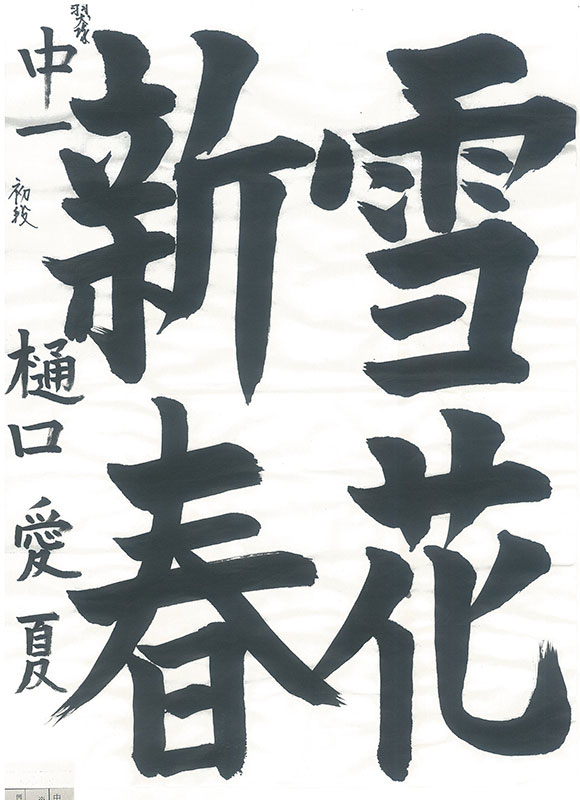 雪花
新春
中一 初段 樋口愛夏